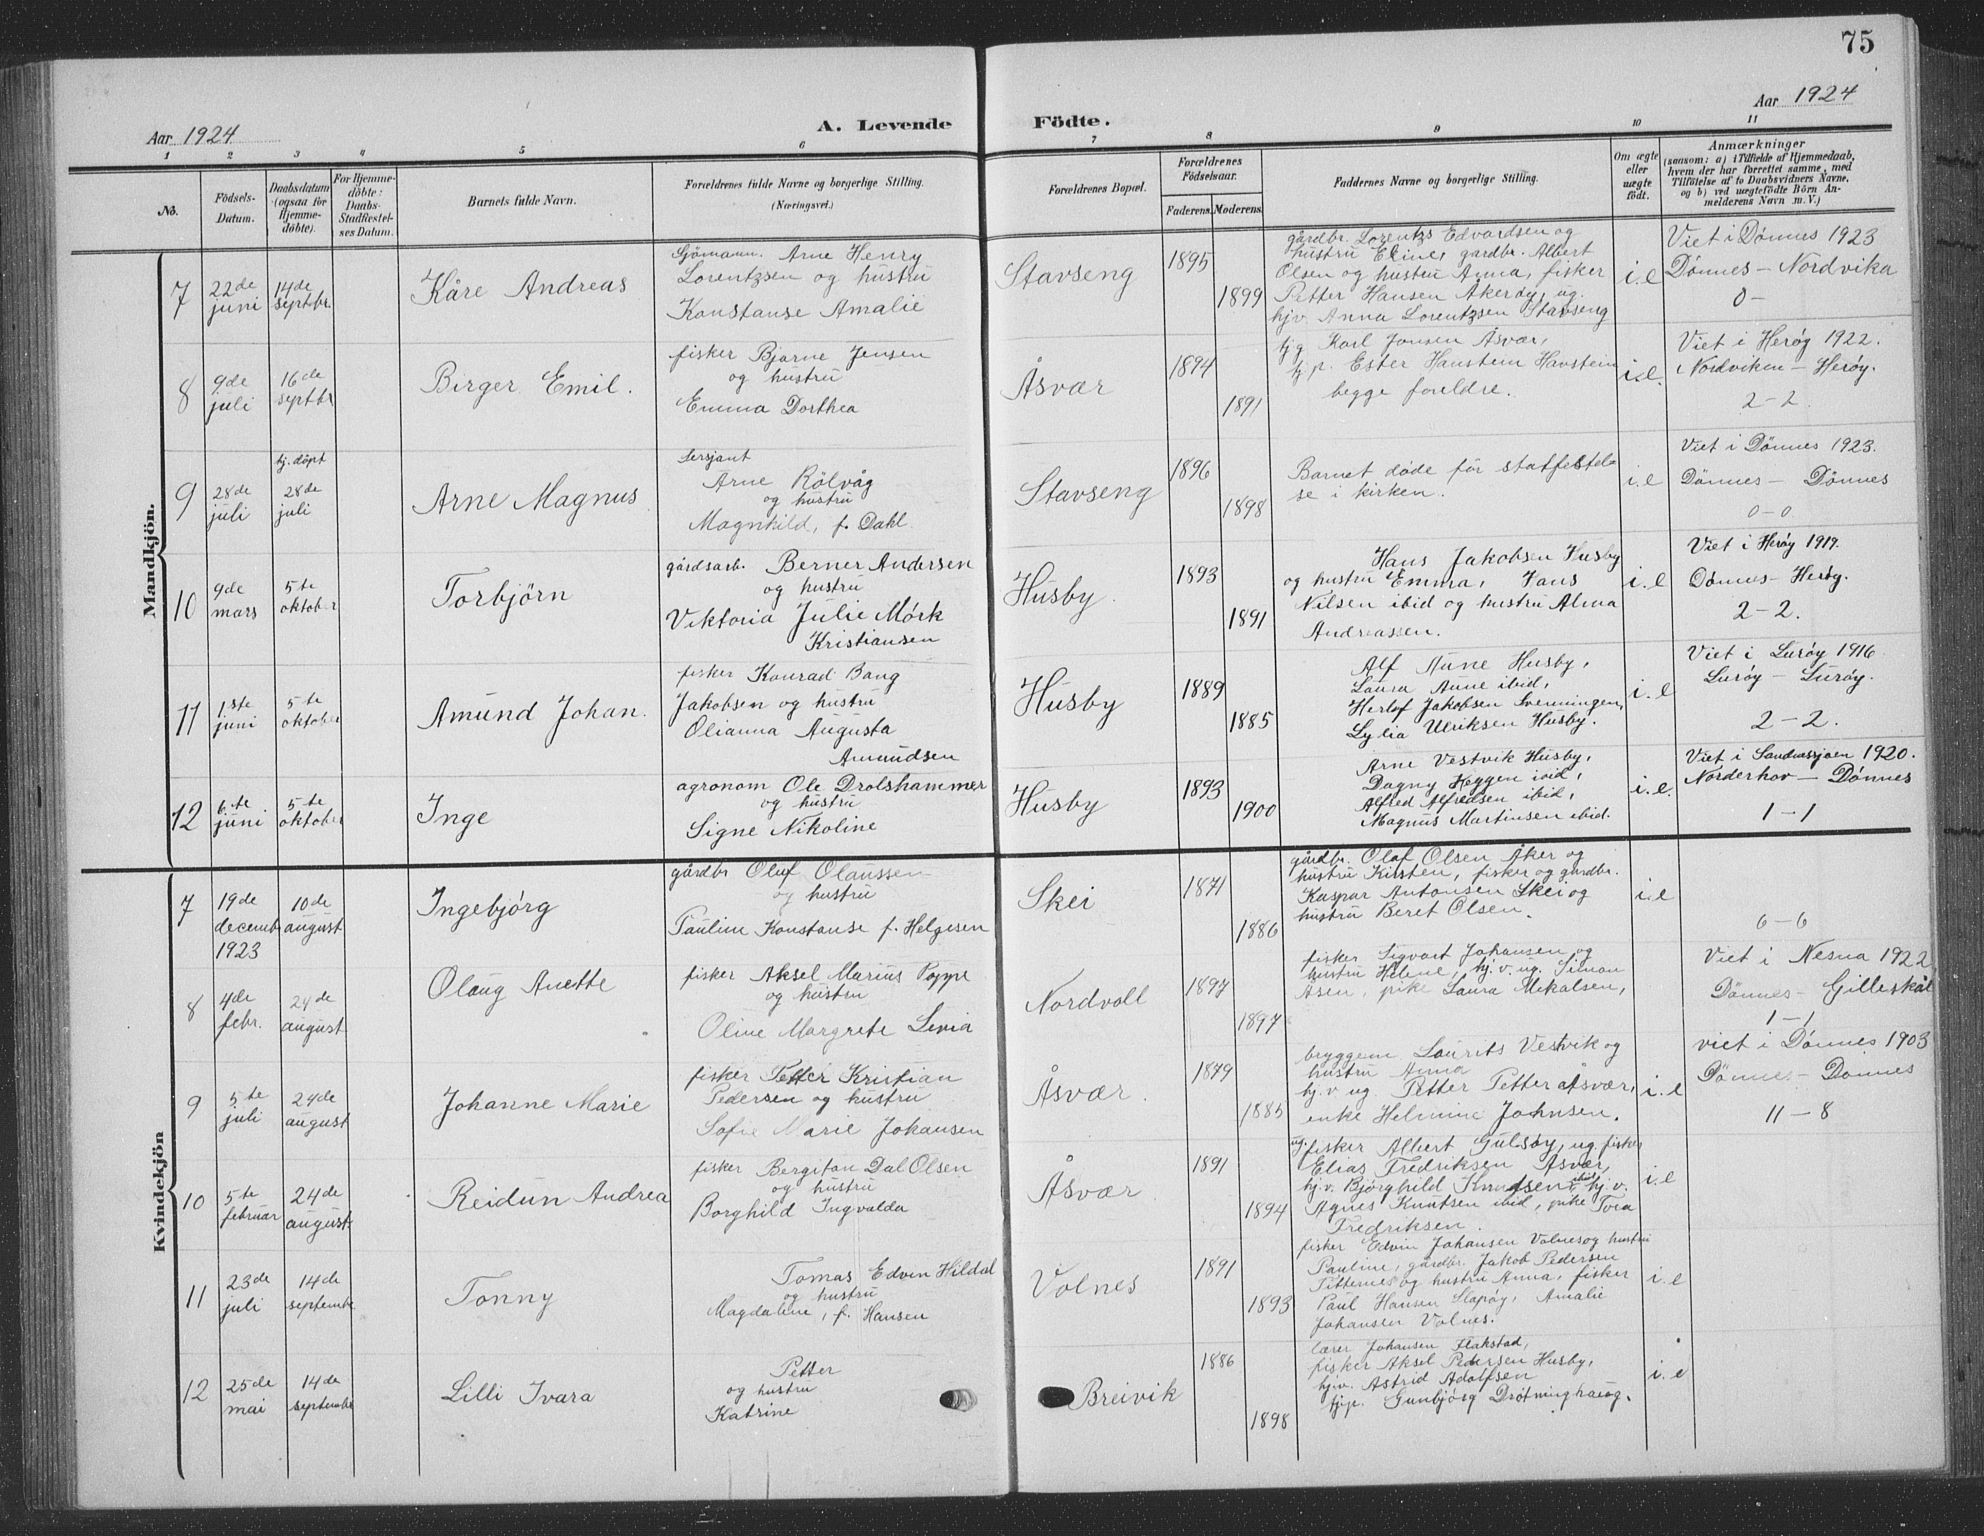 75
Aar 1924
A. Levende Födte.
Aar 1924
1 2 3 4 5 6 7 8 9 10 11
No.
Födsels-Datum.
Daabsdatum (ogsaa for Hjemme-döbte).
For Hjemme-döbte: Daabs-Stadfæstel-ses Datum.
Barnets fulde Navn.
Forældrenes fulde Navne og borgerlige Stilling.
(Næringsvei.)
Forældrenes Bopæl.
Forældrenes Födselsaar.
Faderens. Moderens.
Faddernes Navne og borgerlige Stilling.
Om ægte eller uægte födt.
Anmærkninger
(saasom: a) i Tilfælde af Hjemmedaab,
hvem der har forrettet samme, med
Tilföielse af to Daabsvidners Navne,
og b) ved uægtefödte Börn An-
melderens Navn m. V.)
Mandkjön.
7
22de juni
14de septbr.
Kåre Andreas
Sjömann. Arne Henry
Lorentzsen og hustru
Konstanse Amalie
Stavseng
1895
1899
gårdbr. Lorentz Edvardsen og
hustru Eline, gårdbr. Albert
Olsen og hustru Anna, fisker
Petter Hansen Åkerøy, ug.
hjv. Anna Lorentzsen Stavseng
i.e
Viet i Dønnes 1923
Dønnes - Nordvika
0-
8
9de juli
16de septbr
Birger Emil.
fisker Bjarne Jensen
og hustru
Emma Dorthea
Åsvær
1894
1891
Karl Jonsen Åsvær,
Ester Hanstein Havstein
begge foreldre.
i.e.
Viet i Herøy 1922.
Nordviken - Herøy.
2-2
9
28de juli
hj. döpt
28de juli
Arne Magnus
Sersjant
Arne Rölvåg
og hustru
Magnhild, f. Dahl.
Stavseng
1896
1898
Barnet døde før stadfestel-
se i kirken.
i.e
Viet i Dønnes 1923.
Dønnes - Dønnes
0-0
10
9de mars
5te oktober
Torbjörn
gårdsarb. Berner Andersen
og hustru
Viktoria Julie Mórk
Kristiansen
Husby.
1893
1891
Hans Jakobsen Husby
og hustru Emma, Hans
Nilsen ibid og hustru Alma
Andreassen.
i.e
Viet i Herøy 1919.
Dønnes - Herøy.
2-2.
11
1ste juni
5te oktober
Amund Johan.
fisker Konrad Bang
Jakobsen og hustru
Olianna Augusta
Amundsen
Husby
1889
1885
Alf Aune Husby,
Laura Aune ibid,
Herlof Jakobsen Svenningen,
Lylia Ulriksen Husby.
i.e
Viet i Lurøy 1916.
Lurøy - Lurøy.
2-2.
12
6te juni
5te oktober
Inge
agronom Ole Drolshammer
og hustru
Signe Nikoline
Husby
1893
1900
Arne Vestvik Husby,
Dagny Heggen ibid,
Alfred Alfredsen ibid,
Magnus Martinsen ibid.
i.e.
Viet i Sandnessjøen 1920.
Norderhov - Dønnes
1-1
Kvindekjön
7
19de decemb 1923
10de august
Ingebjórg
gårdbr Oluf Olaussen
og hustru
Pauline Konstanse f. Helgesen
Skei
1871
1886
gårdbr. Olaf Olsen Åker og
hustru Kirsten, fisker og gårdbr.
Kaspar Antonsen Skei og
hustru Beret Olsen.
i.e
6-6
8
4de febr.
24de august
Olaug Anette
fisker Aksel Marius Poppe
og hustru
Oline Margrete Levia
Nordvoll
1897
1897
fisker Sigvart Johansen og
hustru Helene, hj.v. ug. Simon
Åsen, pike Laura Mikalsen,
Viet i Nesna 1922
Dønnes - Gilleskål
1-1
9
5te juli
24de august
Johanne Marie
fisker Petter Kristian
Pedersen og hustru
Sofie Marie Johansen
Åsvær.
1879
1885
bryggem. Laurits Vestvik og
hustru Anna
hj.v ug. Petter Petter Åsvær,
enke Helmine Johnsen.
i.e
viet i Dønnes 1903
Dønnes - Dønnes
11-8
10
5te februar
24de august
Reidun Andrea
fisker Bergiton Dal Olsen
og hustru
Borghild Ingvalda
Åsvær
1891
1894
ug. fisker Albert Gulsøy, ug fisker
Elias Fredriksen Åsvær,
hj.v. Bjórghild Knudsen ibid, hj.v.
Agnes Knutsen ibid, pike Tora
Fredriksen.
i.e
11
23de juli
14de septembr
Tonny
Tomas Edvin Hildal
og hustru
Magdalene, f. Hansen
Volnes
1891
1893
fisker Edvin Johansen Volnes og hustru
Pauline, gårdbr. Jakob Pedersen
Titternes og hustru Anna, fisker
Paul Hansen Slapøy, Amalie
Johansen Volnes.
i.e
12
25de mai
14de septembr
Lilli Ivara
Petter
og hustru
Katrine
Breivik
1886
1898
lærer Johansen Flakstad,
fisker Aksel Pedersen Husby,
hjv. Astrid Adolfsen
hjp. Gunbjórg Drotninghaug.
i.e